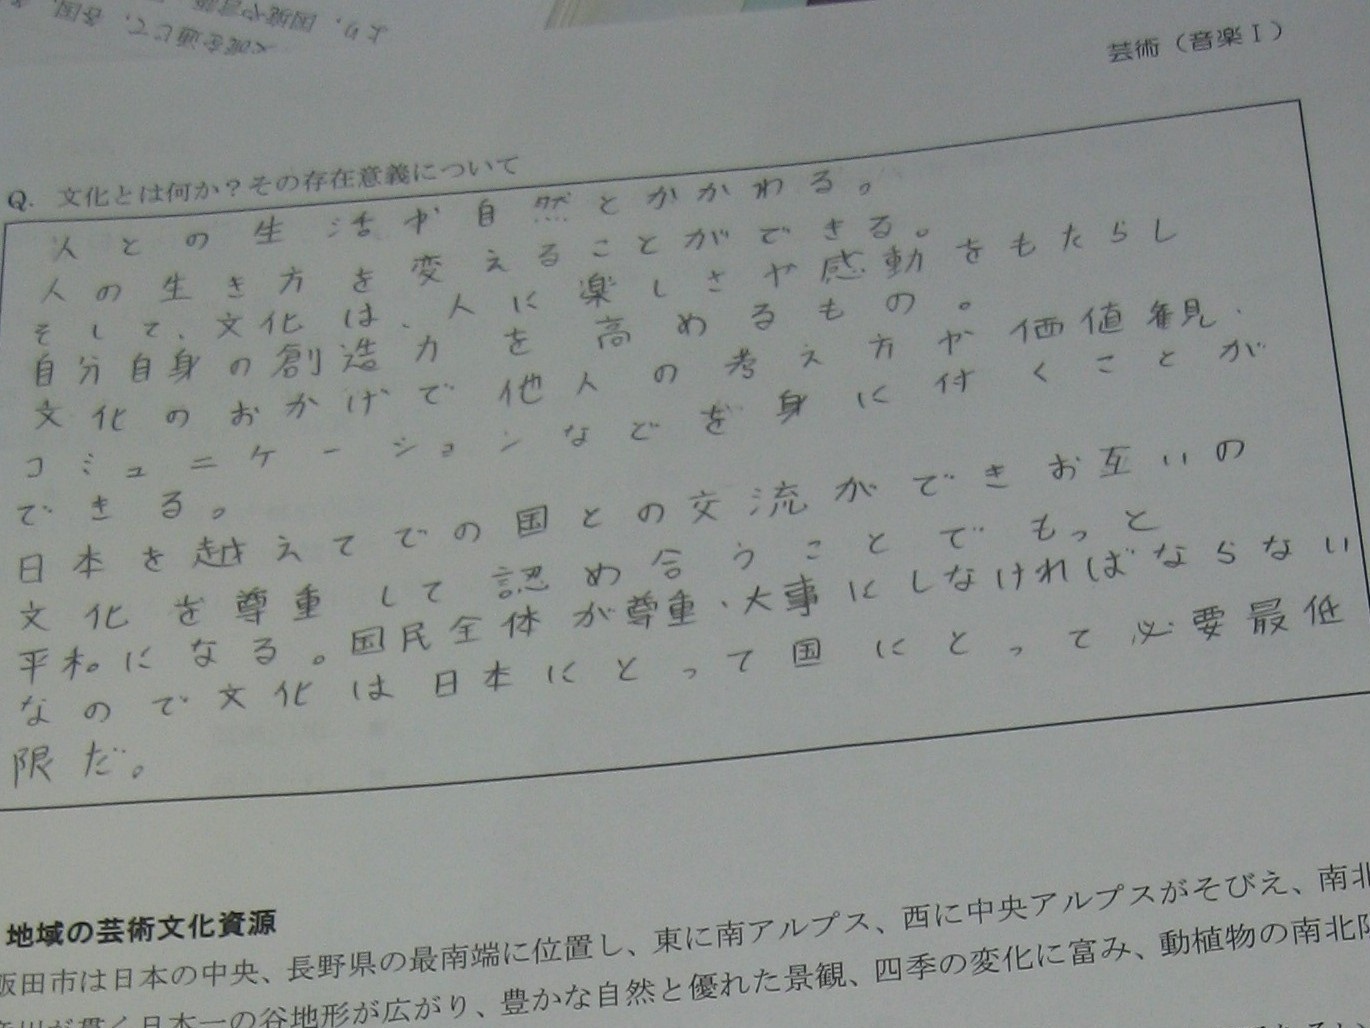 芸術（音楽Ⅰ）
Q. 文化とは何か？その存在意義について
人との生活や自然とかかわる。
人の生き方を変えることができる。
そして、文化は、人に楽しさや感動をもたらし
自分自身の創造力を高めるもの。
文化のおかげで他人の考え方や価値観、
コミュニケーションなどを身に付くことが
できる。
日本を越えてでの国との交流ができお互いの
文化を尊重して認め合うことでもっと
平和になる。国民全体が尊重、大事にしなければならない
なので文化は日本にとって国にとって必要最低
限だ。
地域の芸術文化資源
飯田市は日本の中央、長野県の最南端に位置し、東に南アルプス、西に中央アルプスがそびえ、南北
が貫く日本一の谷地形が広がり、豊かな自然と優れた景観、四季の変化に富み、動植物の南北限